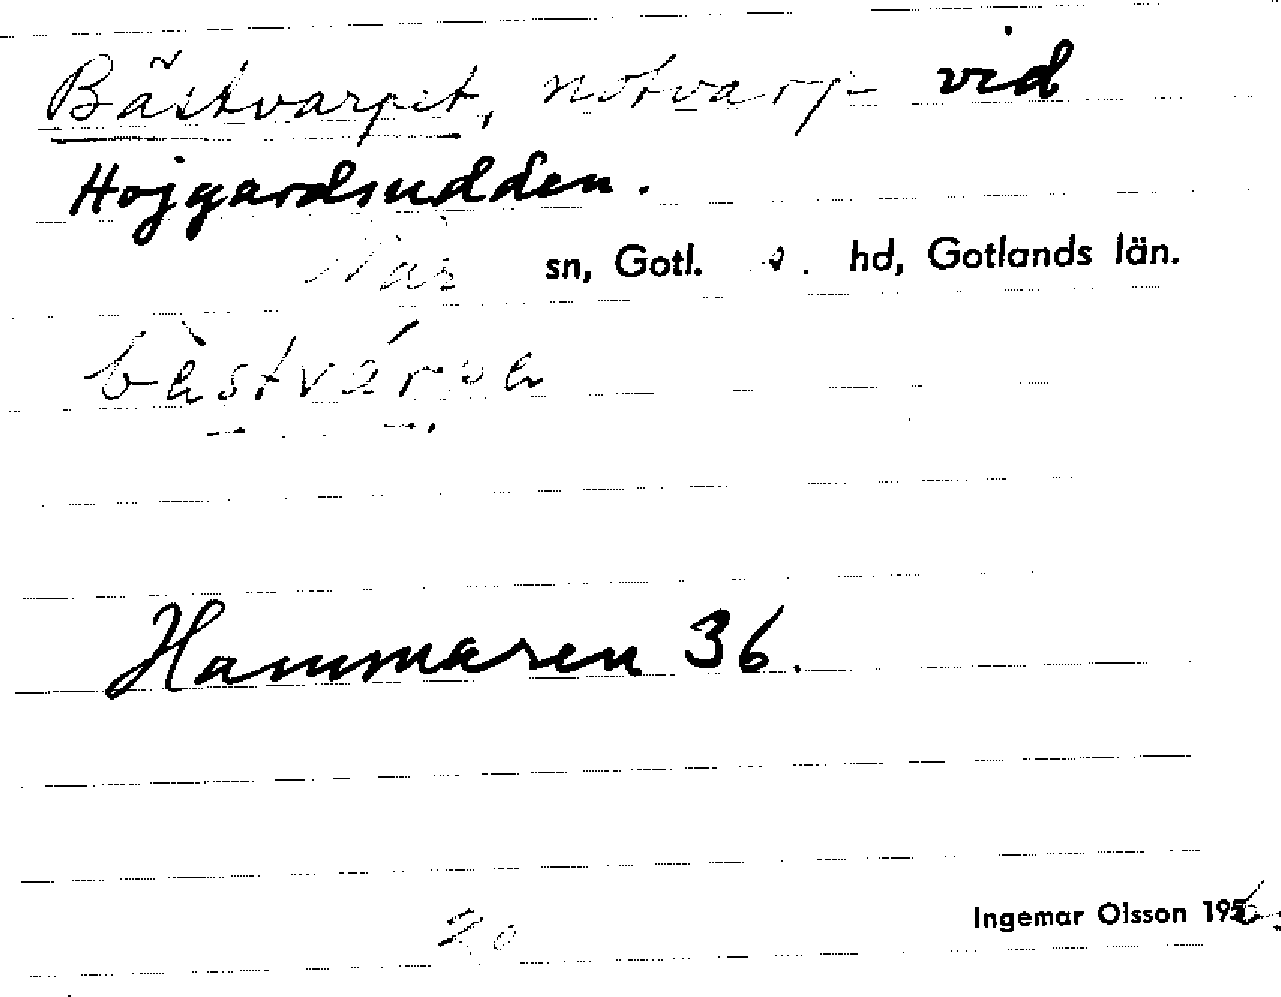 Bästvarpet, notvarp vid
Hojgardsudden.
När sn, Gotl. s. hd, Gotlands län.
bàstvárpa
Hammaren 36.
20 Ingemar Olsson 1956